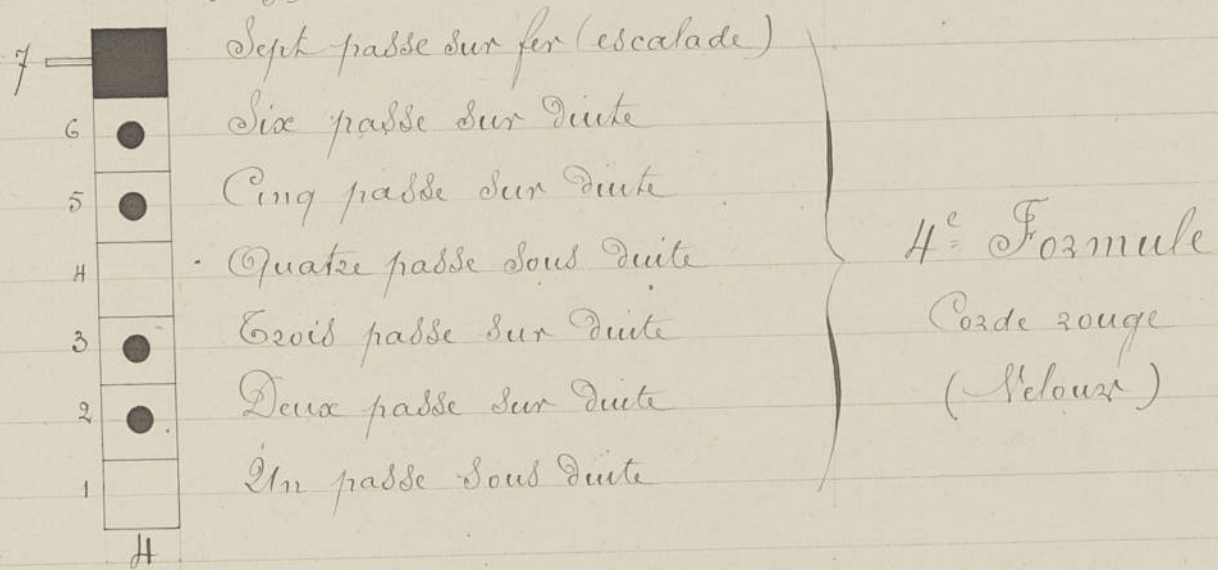 7 Sept passe sur fer (escalade)
6 Six passe sur duite
5 Cinq passe sur duite
4 Quatre passe sous duite
3 Trois passe sur duite
2 Deux passe sur duite
1 Un passe sous duite
4
4e Formule
Corde rouge
(Velours)